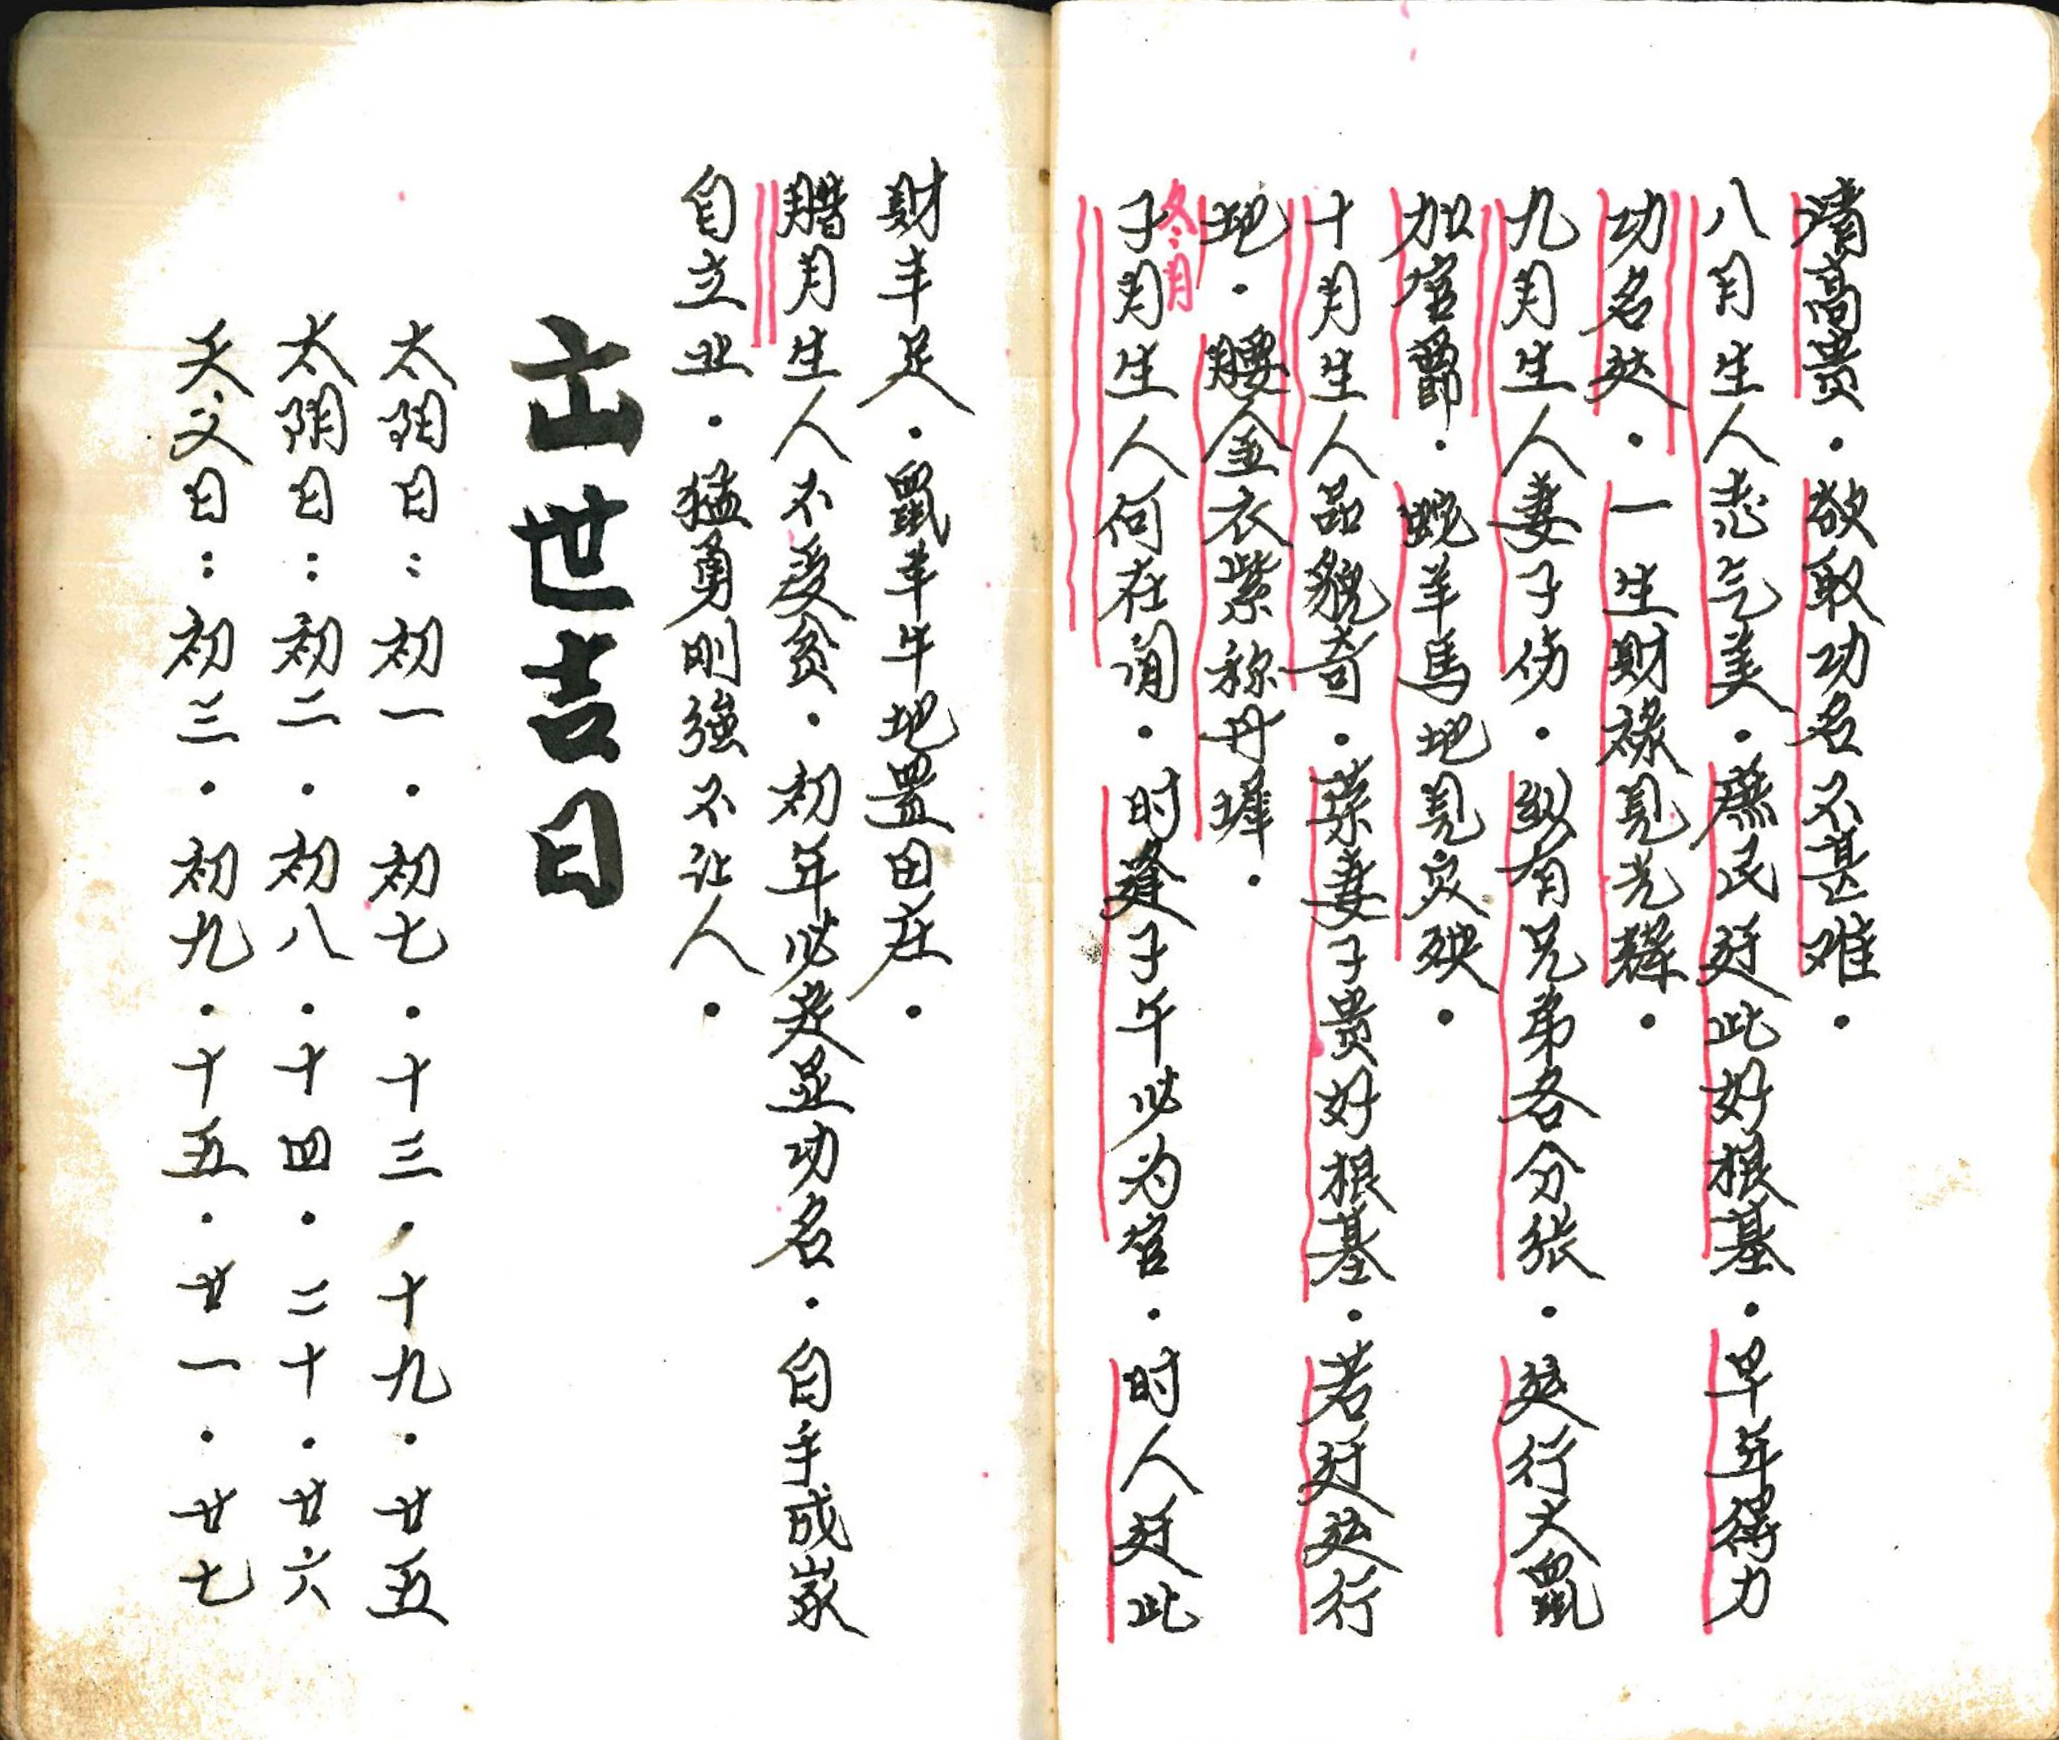 清高贵．欲取功名不甚难．
八月生人志气美．庶民廷此好根基．早年得力
功名处．一生财祿见光辉．
九月生人妻子伤．纵有兄弟各分张．运行犬鼠
加官爵．蛇羊馬地見灾殃．
十月生人品貌奇．荣妻子贵好根基．若廷运行
地．腰金衣紫称丹墀．
冬月
子月生人何在间．时逢子午必为官．时人廷此
财丰足．鼠羊牛地置田庄．
腊月生人不受贫．初年必发显功名．自手成家
自立业．猛勇刚強不让人．
出世吉日
太阳日：初一．初七．十三．十九．廿五
太阴日：初二．初八．十四．二十．廿六
天父日：初三．初九．十五．廿一．廿七